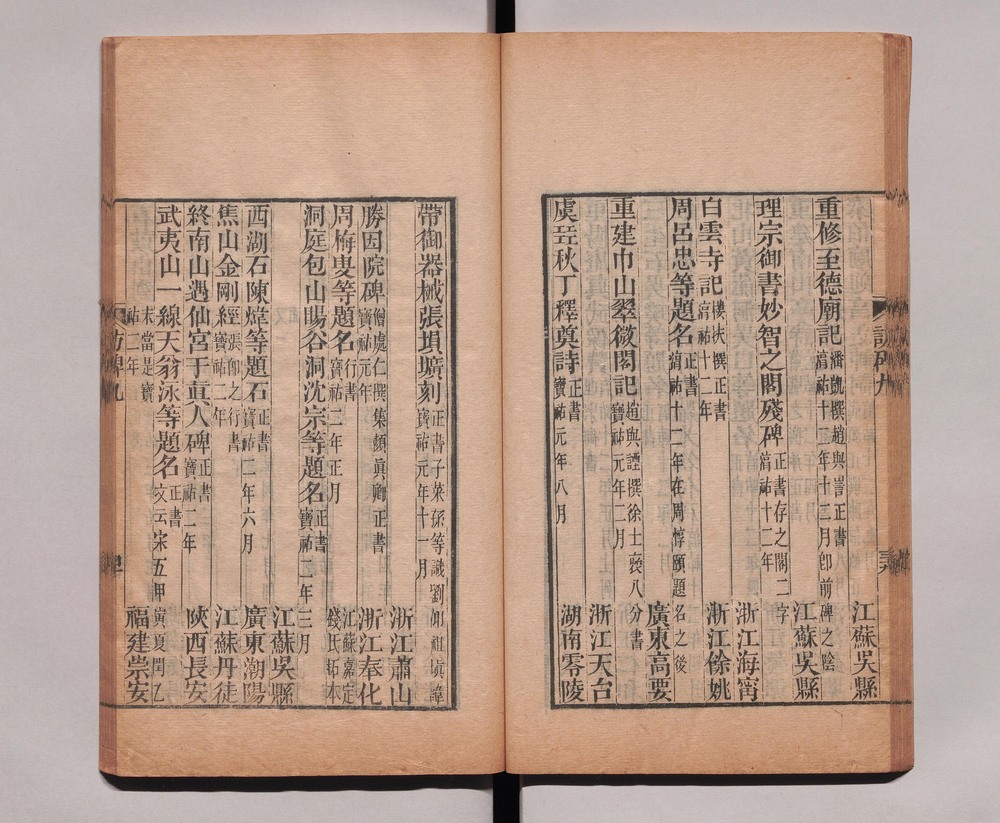 重修至德廟記 潘凱撰趙與訔正書 淳祐十二年十二月卽前碑之陰 江蘇吳縣
理宗御書妙智之閣殘碑 正書存之閣二字 淳祐十二年 浙江海甯
白雲寺記 樓扶撰正書 淳祐十二年 浙江餘姚
周呂忠等題名 正書 淳祐十二年在周惇頤題名之後 廣東高要
重建巾山翠微閣記 趙與譚撰徐士褎八分書 寶祐元年二月 浙江天台
虞𤤴秋丁釋奠詩 正書 寶祐元年八月 湖南零陵
帶御器械張塤壙刻 正書子萊孫等識劉 寶祐元年十一月 浙江蕭山
勝因院碑 僧處仁撰集顏眞卿正書 寶祐元年 浙江奉化
周梅叟等題名 行書 寶祐二年正月 江蘇嘉定錢氏拓本
洞庭包山暘谷洞沈宗等題名 正書 寶祐二年三月 江蘇吳縣
西湖石陳煒等題石 正書 寶祐二年六月 廣東潮陽
焦山金剛經 張卽之行書 寶祐二年 江蘇丹徒
終南山遇仙宮于眞人碑 正書 寶祐二年 陝西長安
武夷山一線天翁泳等題名 正書 文云宋五甲寅夏閏乙未當是寶祐二年 福建崇安
訪碑九